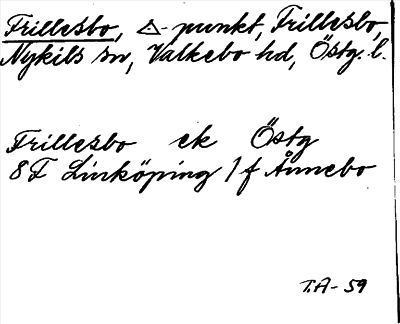 Frillesbo, △-punkt, Frillesbo,
Nykils sn, Valkebo hd, Östg. l.
Frillesbo ek Östg
8F Linköping 1f Ånnebo
T.A-59